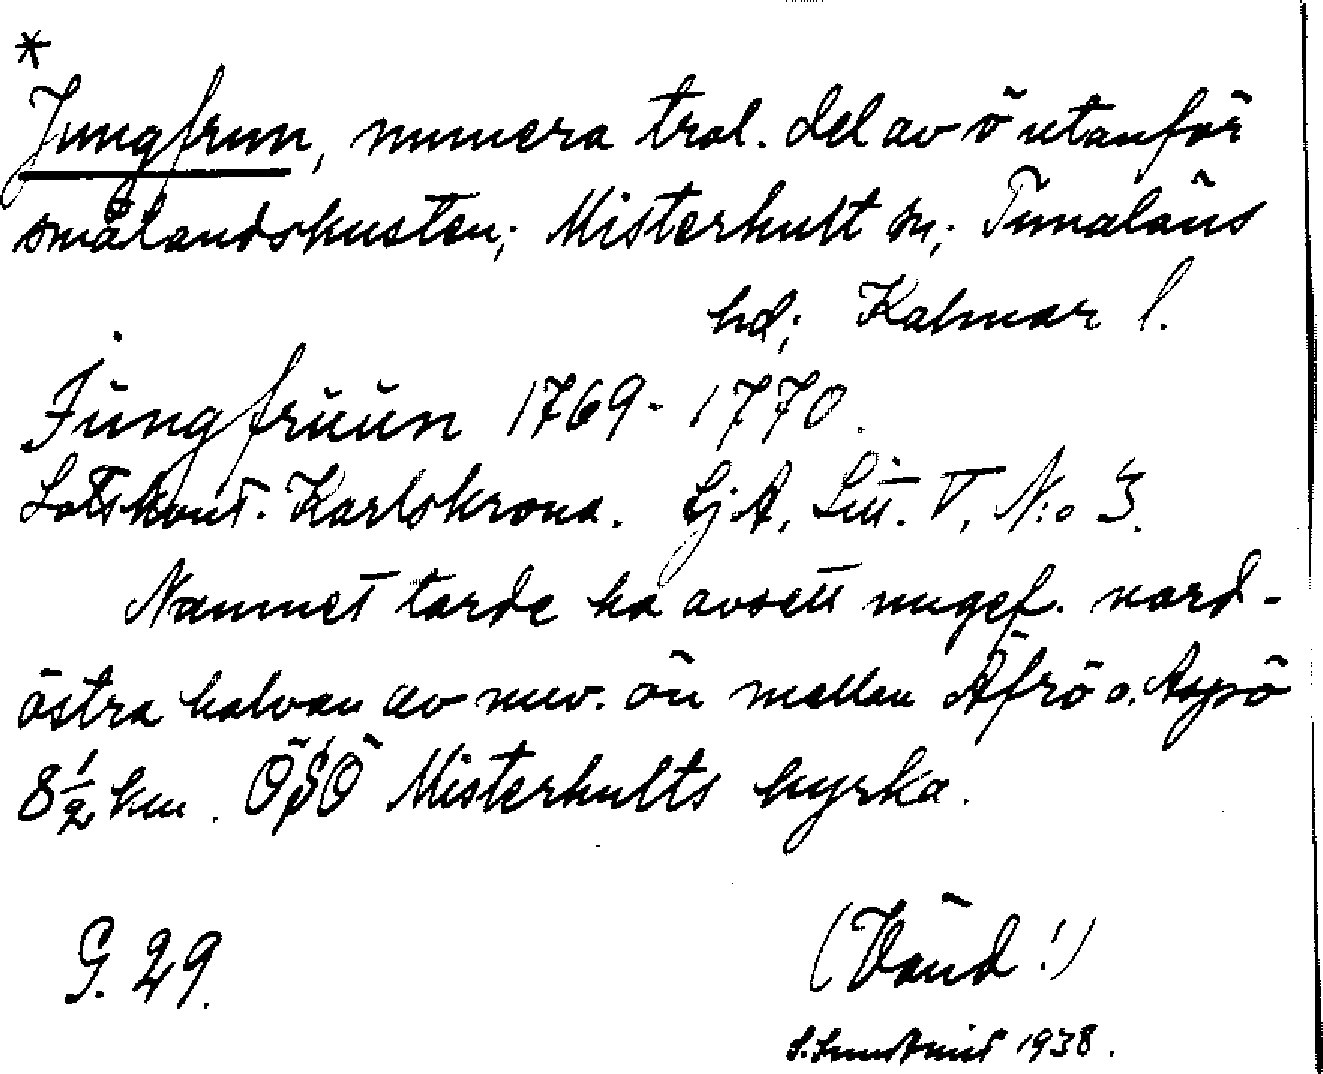 *
Jungfrun, numera trol. del av ö utanför
smålandskusten; Misterhult sn; Tunaläns
hd; Kalmar l.
Jŭngfrŭŭn 1769-1770.
Lotskont. Karlskrona. SjA, Litt. V, N:o 3.
Namnet torde ha avsett ungef. nord-
östra halvan av nuv. ön mellan Äfrö o. Aspö
8 1/2 km. ÖSÖ Misterhults kyrka.
G. 29.
(Vänd!)
1938.